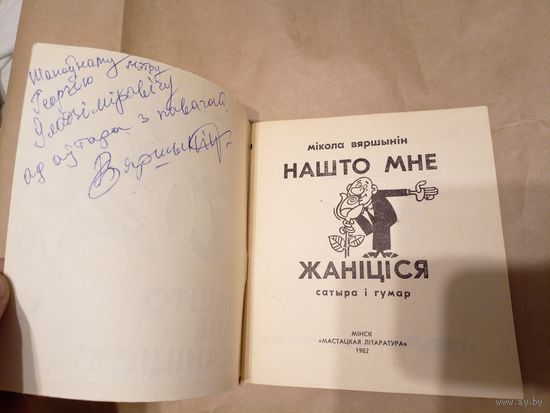 Шаноўнаму мэтру
Георгію
Уладзіміравічу
ад аўтара з павагай.
Вяршынін
мікола вяршынін
НАШТО МНЕ
ЖАНІЦІСЯ
сатыра і гумар
МІНСК
«МАСТАЦКАЯ ЛІТАРАТУРА»
1982
www.ay.by